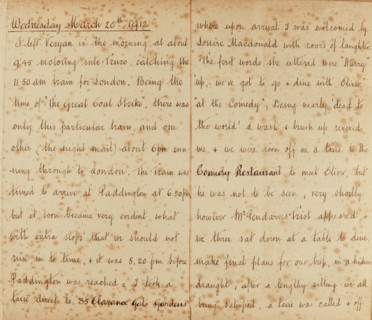 Wednesday March 20th 1912
I left Veryan in the morning at about
9.45 motoring into Truro, catching the
11.50 am train for London. Being the
time of "the Great Coal Strike", there was
only this particular train, and one
other (the night mail) about 6pm run-
ning through to London. The train was
timed to arrive at Paddington at 6.50pm
but it soon became very evident what
with extra stops that we should not
run in to time, & it was 8.20 pm before
Paddington was reached & I took a
taxi direct to 35 Clarence Gate Gardens
where upon arrival I was welcomed by
Louise Macdonald with roars of laughter
The first words she uttered were "Hurry
up, we've got to go & dine with Oliver
at the Comedy", Being nearly 'dead to
the world' a wash & brush up revived
me, & we were soon off in a taxi to the
Comedy Restaurant to meet Oliver, but
he was not to be seen, very shortly
however Mr Pendarves Vivian appeared, &
we three sat down at a table to dine,
make final plans for our trip, in a
draught, after a lengthy sitting, we all
being satisfied, a taxi was called & off